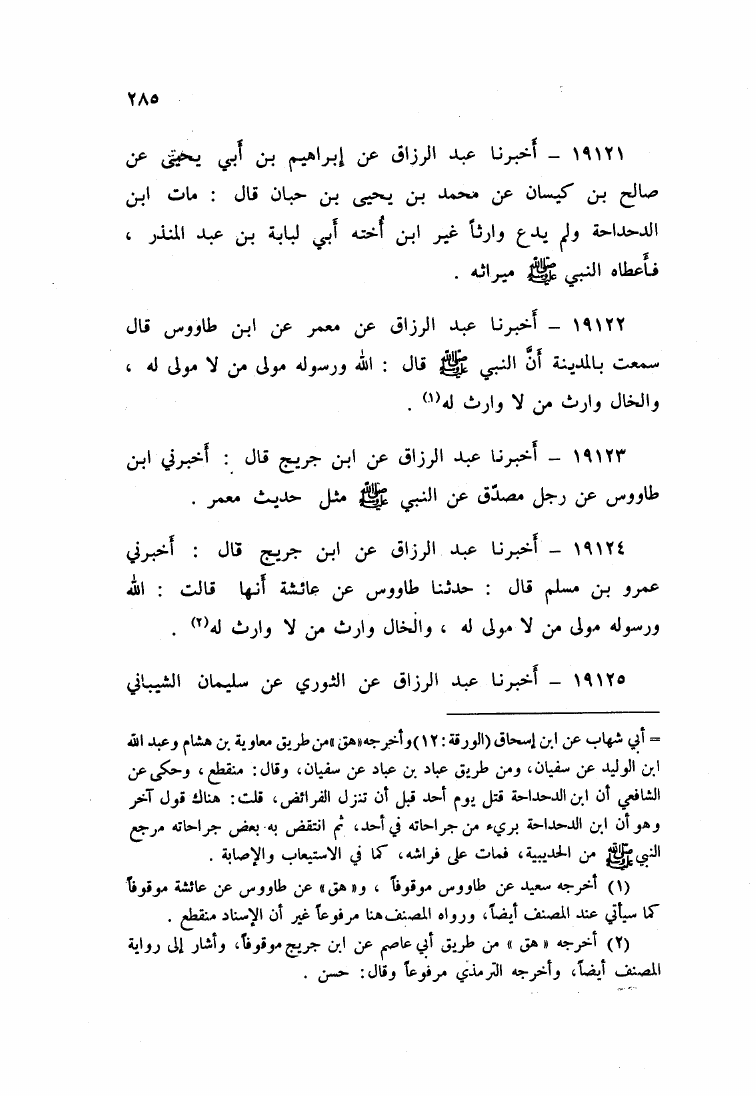 ٢٨٥
١٩١٢١ – أخبرنا عبد الرزاق عن إبراهيم بن أبي يحيى عن
صالح بن كيسان عن محمد بن يحيى بن حبان قال : مات ابن
الدحداحة ولم يدع وارثاً غير ابن أُخته أبي لبابة بن عبد المنذر ،
فأعطاه النبي ﷺ ميراثه .
١٩١٢٢ – أخبرنا عبد الرزاق عن معمر عن ابن طاووس قال
سمعت بالمدينة أنَّ النبي ﷺ قال : الله ورسوله مولى من لا مولى له ،
والخال وارث من لا وارث له(١) .
١٩١٢٣ – أخبرنا عبد الرزاق عن ابن جريج قال : أخبرني ابن
طاووس عن رجل مصدّق عن النبي ﷺ مثل حديث معمر .
١٩١٢٤ – أخبرنا عبد الرزاق عن ابن جريج قال : أخبرني
عمرو بن مسلم قال : حدثنا طاووس عن عائشة أنها قالت : الله
ورسوله مولى من لا مولى له ، والخال وارث من لا وارث له(٢) .
١٩١٢٥ – أخبرنا عبد الرزاق عن الثوري عن سليمان الشيباني
= أبي شهاب عن ابن إسحاق (الورقة: ١٢) وأخرجه «هق» من طريق معاوية بن هشام وعبد الله
ابن الوليد عن سفيان، ومن طريق عباد بن عباد عن سفيان، وقال: منقطع، وحكى عن
الشافعي أن ابن الدحداحة قتل يوم أحد قبل أن تنزل الفرائض، قلت: هناك قول آخر
وهو أن ابن الدحداحة بريء من جراحاته في أحد، ثم انتقض به بعض جراحاته مرجع
النبي ﷺ من الحديبية، فمات على فراشه، كما في الاستيعاب والإصابة .
(١) أخرجه سعيد عن طاووس موقوفاً ، و« هق » عن طاووس عن عائشة موقوفاً
كما سيأتي عند المصنف أيضاً، ورواه المصنف هنا مرفوعاً غير أن الإسناد منقطع .
(٢) أخرجه « هق » من طريق أبي عاصم عن ابن جريج موقوفاً، وأشار إلى رواية
المصنف أيضاً، وأخرجه الترمذي مرفوعاً وقال: حسن .